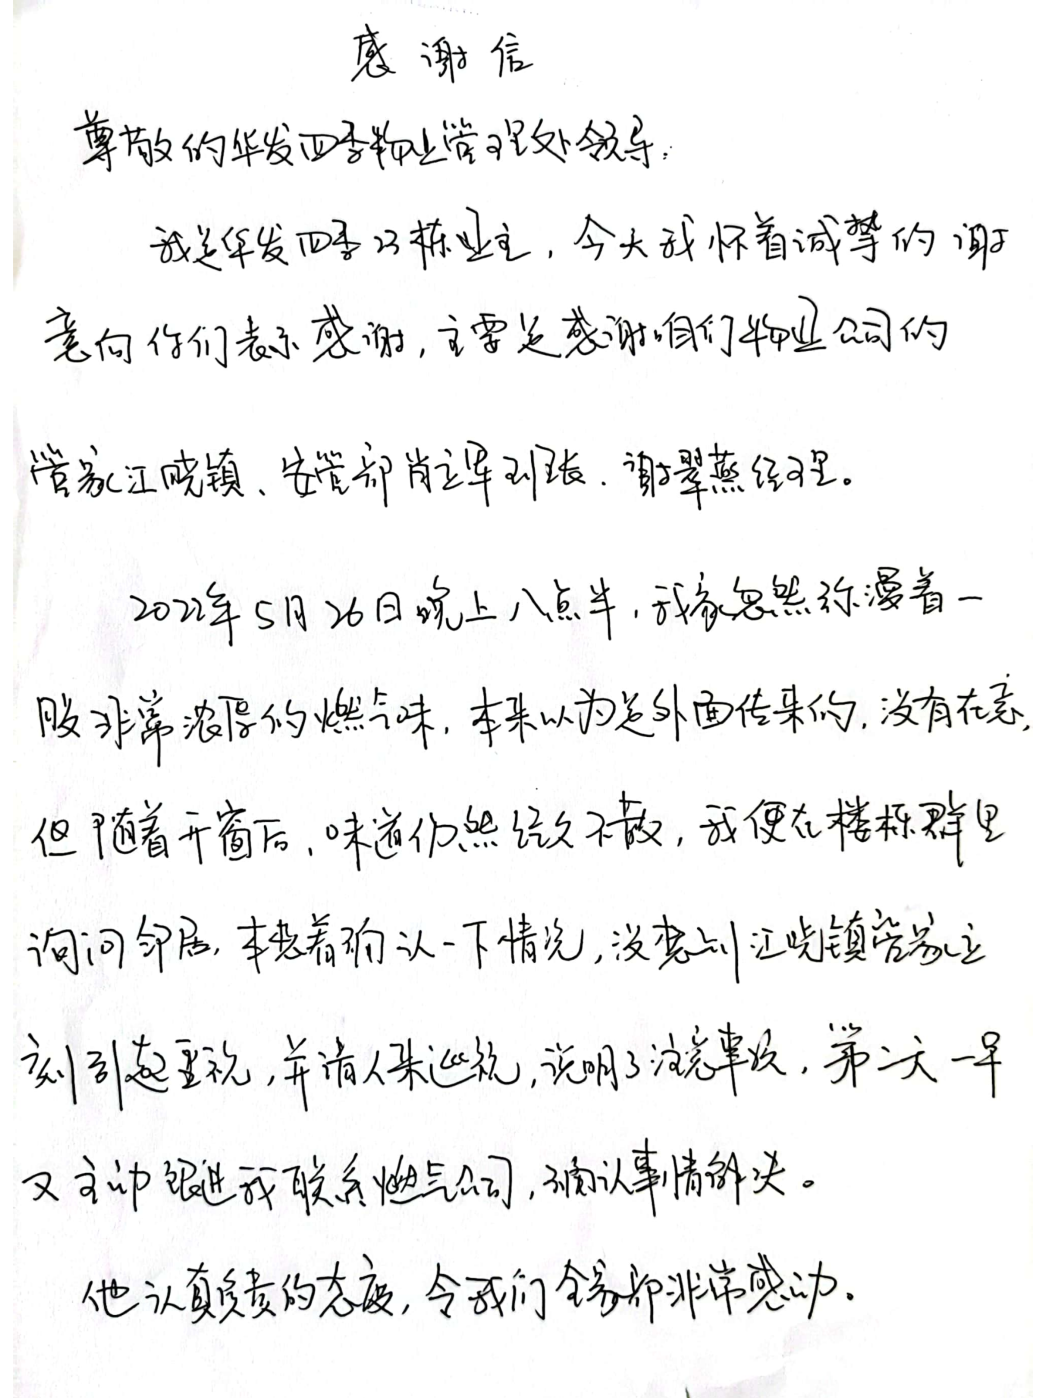 感谢信
尊敬的华发四季物业管理处领导：
我是华发四季23栋业主，今天我怀着诚挚的谢
意向你们表示感谢，主要是感谢咱们物业公司的
管家江晓镇、安管部肖立军副队长、谢翠燕经理。
2022年5月26日晚上八点半，我家忽然弥漫着一
股非常浓厚的燃气味，本来以为是外面传来的，没有在意，
但随着开窗后，味道仍然经久不散，我便在楼栋群里
询问邻居，本想着确认一下情况，没想到江晓镇管家立
刻引起重视，并请人来巡视，说明了注意事项，第二天一早
又主动跟进我联系燃气公司，确认事情解决。
他认真负责的态度，令我们全家都非常感动。